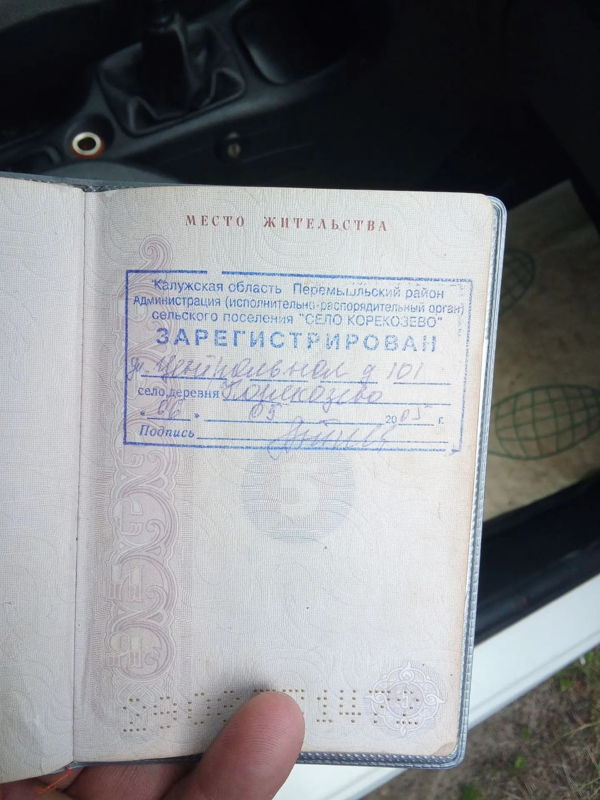 МЕСТО ЖИТЕЛЬСТВА
Калужская область Перемышльский район
Администрация (исполнительно-распорядительный орган)
сельского поселения "СЕЛО КОРЕКОЗЕВО"
ЗАРЕГИСТРИРОВАН
ул. Центральная д 101
село, деревня Корекозево
"06" 05 2005 г.
Подпись